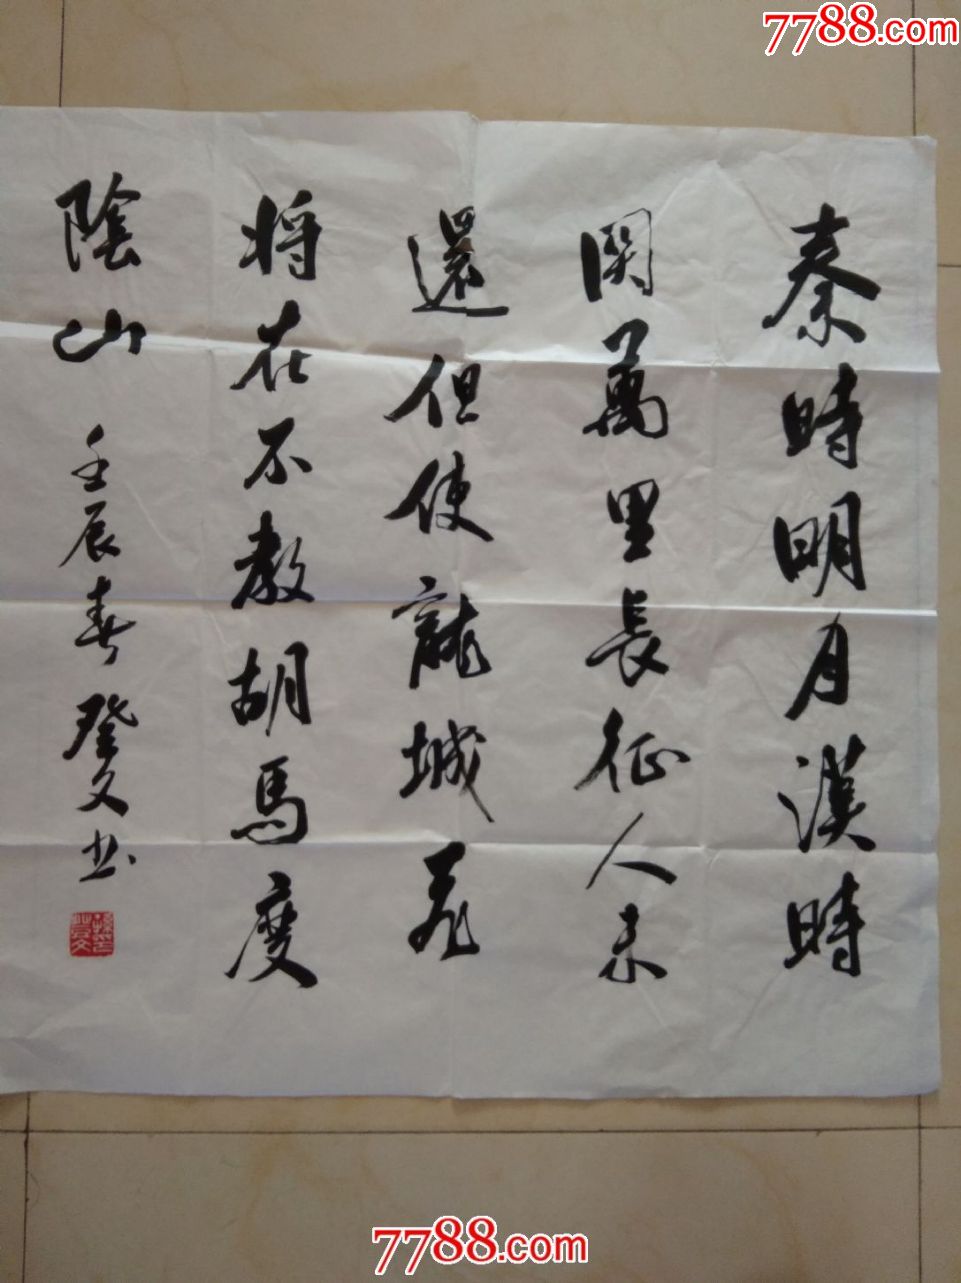 7788.com
秦時明月漢時
関萬里長征人未
還但使龍城飛
將在不教胡馬度
陰山
壬辰春登文书
7788.com